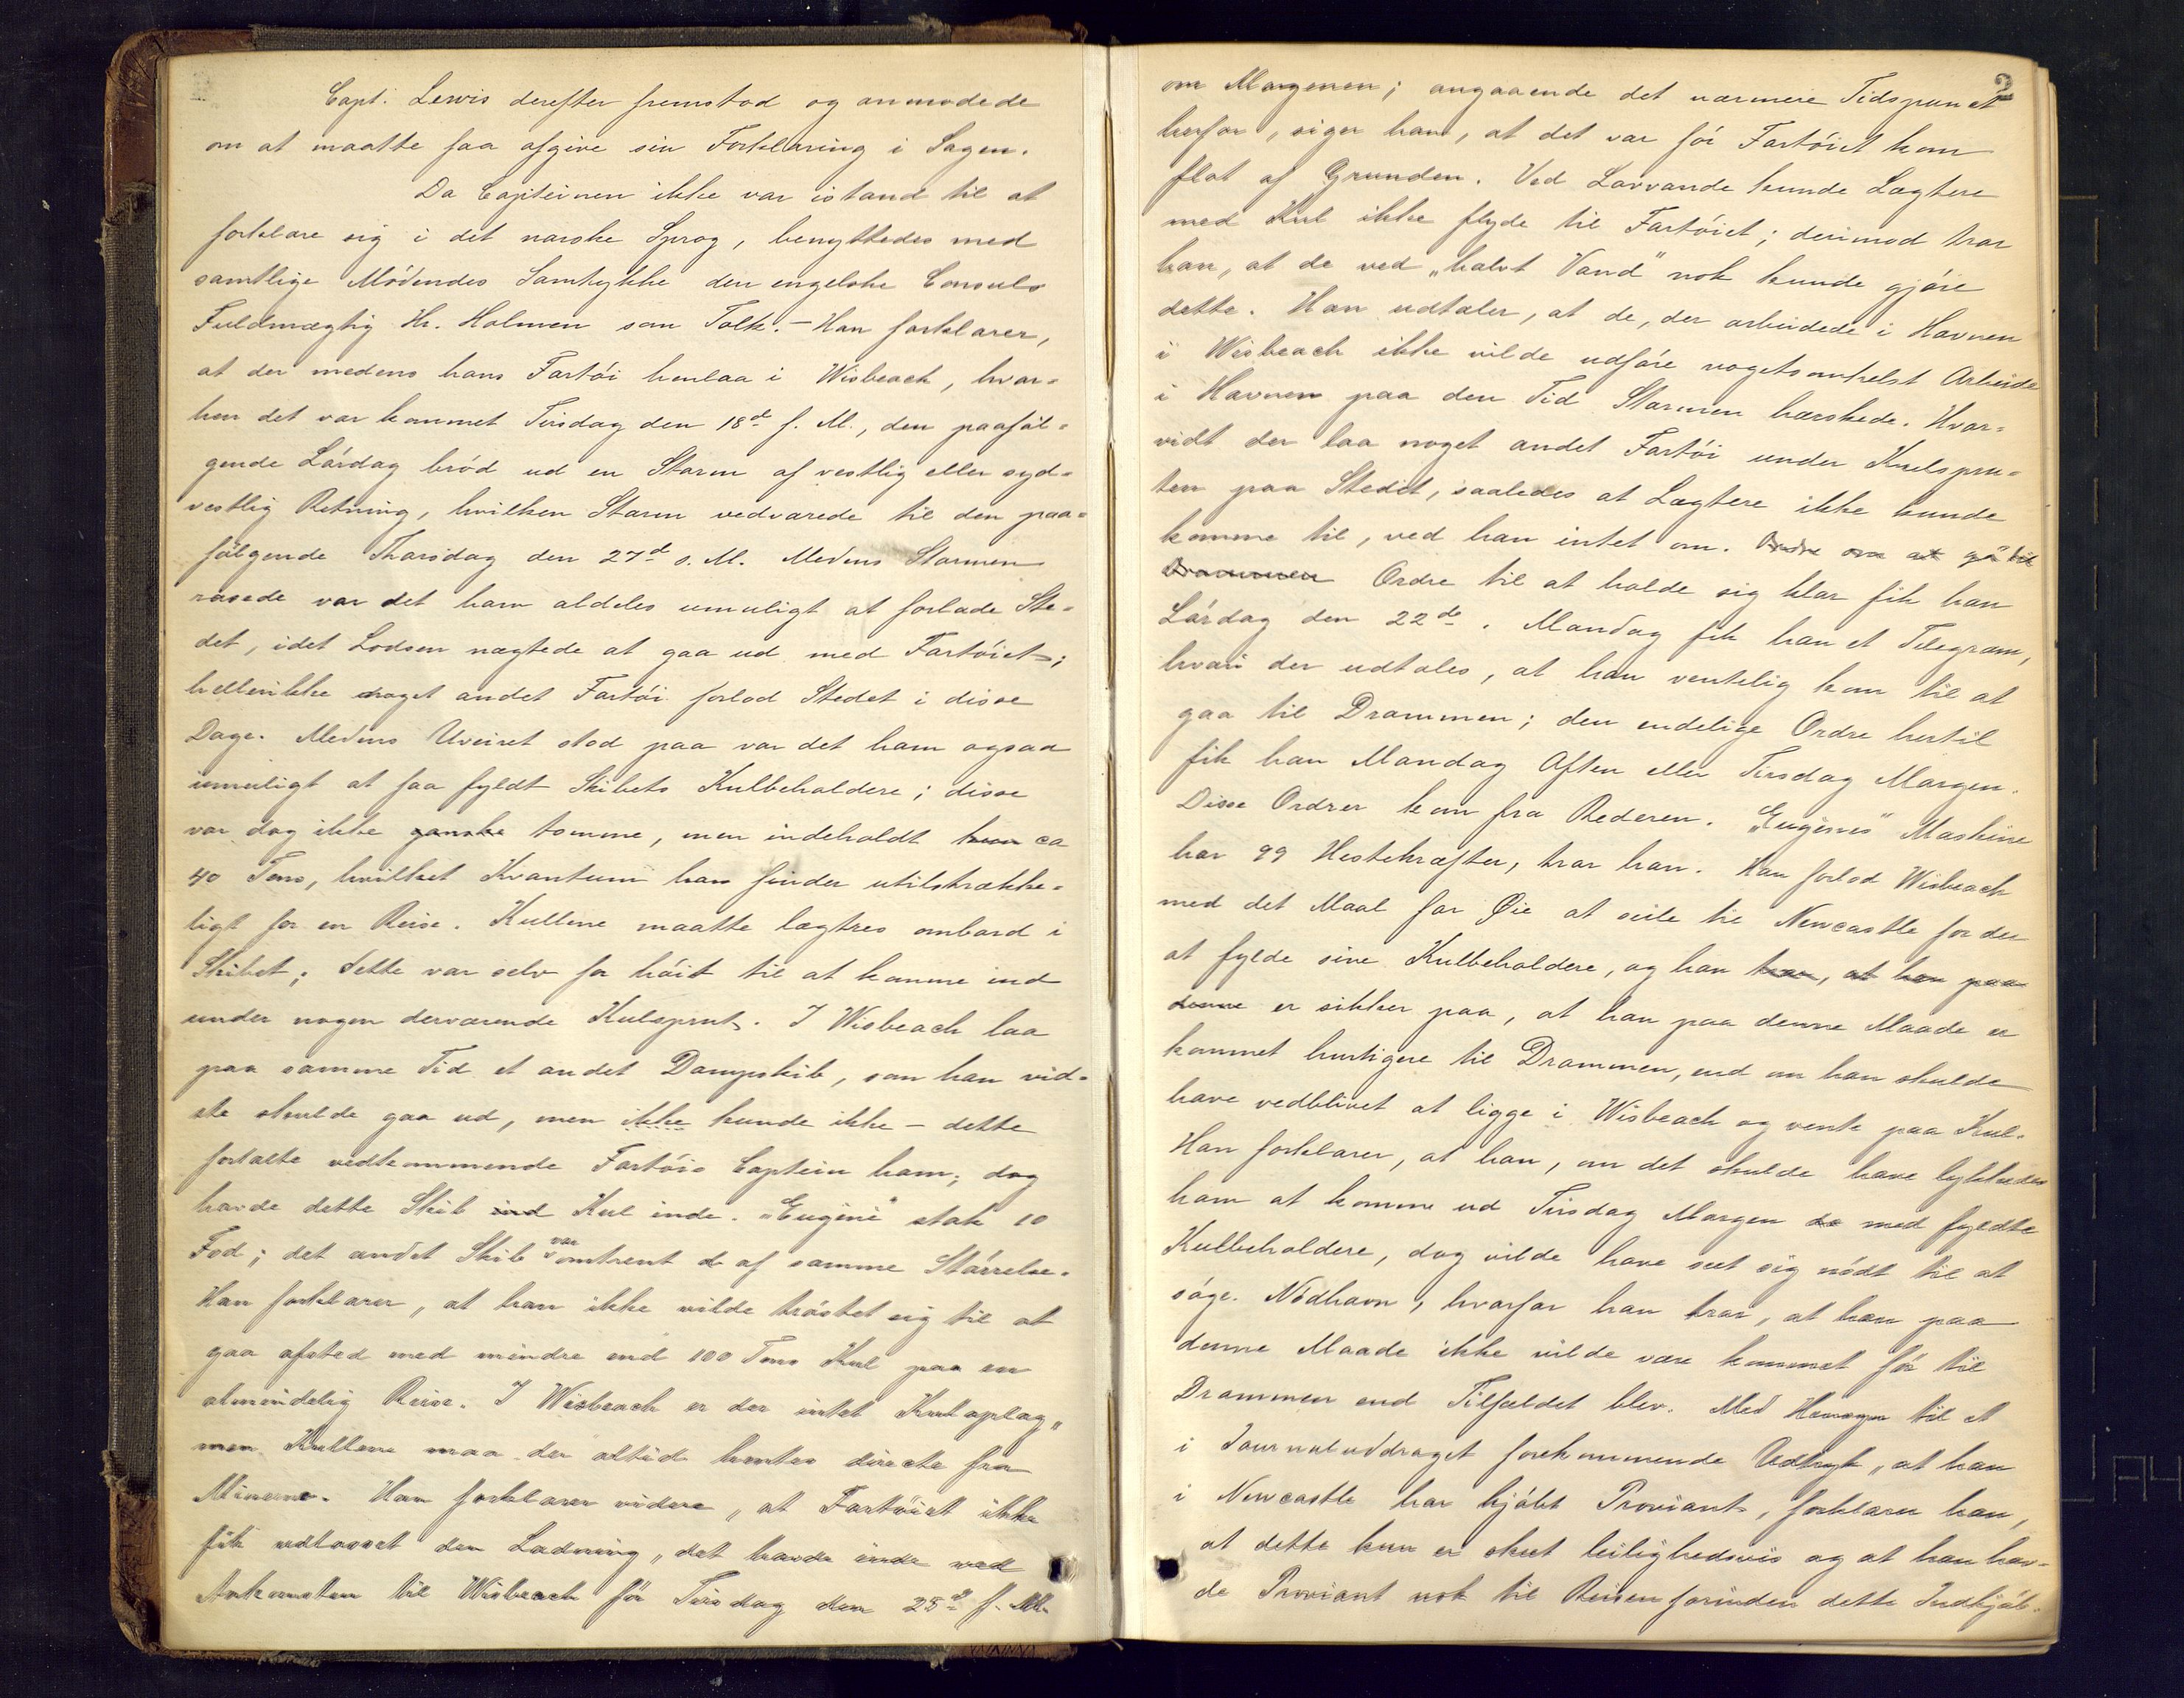 Capt. Lewis derefter fremstod og anmodede
om at maatte faa afgive sin Forklaring i Sagen.
Da Capteinen ikke var istand til at
forklare sig i det norske Sprog, benyttedes med
samtlige Mödendes Samtykke den engelske Consuls
Fuldmægtig Hr. Holmen som Tolk. – Han forklarer,
at der medens hans Fartöi henlaa i Wisbeach, hvor-
hen det var kommet Tirsdag den 18d f. M., den paaföl-
gende Lördag bröd ud en Storm af vestlig eller syd-
vestlig Retning, hvilken Storm vedvarede til den paa-
fölgende Thorsdag den 27d s. M. Medens Stormen
rasede var det ham aldeles umuligt at forlade Ste-
det, idet Lodsen nægtede at gaa ud med Fartöiet;
hellerikke noget andet Fartöi forlod Stedet i disse
Dage. Medens Uveiret stod paa var det ham ogsaa
umuligt at faa fyldt Skibets Kulbeholdere; disse
var dog ikke ganske tomme, men indeholdt kun ca
40 Tons, hvilket Kvantum han finder utilstrække-
ligt for en Reise. Kullene maatte lægtres ombord i
Skibet; dette var selv for höit til at komme ind
under nogen derværende Kulsprut. I Wisbeach laa
paa samme Tid et andet Dampskib, som han vid-
ste skulde gaa ud, men ikke kunde ikke – dette
fortalte vedkommende Fartöis Captein ham; dog
havde dette Skib ind Kul inde. "Eugène" stak 10
Fod; det andet Skib var omtrent d af samme Störrelse.
Han forklarer, at han ikke vilde tröstet sig til at
gaa afsted med mindre end 100 Tons Kul paa en
almindelig Reise. I Wisbeach er der intet Kuloplag,
men Kullene maa der altid hentes directe fra
Minerne. Han forklarer videre, at Fartöiet ikke
fik udlosset den Ladning, det havde inde ved
Ankomsten til Wisbeach för Tirsdag den 25d f. M.
2
om Morgenen; angaaende det nærmere Tidspunct
herfor, siger han, at det var för Fartöiet kom
flot af Grunden. Ved Lavvande kunde Lægtere
med Kul ikke flyde til Fartöiet; derimod tror
han, at de ved "halvt Vand" nok kunde gjöre
dette. Han udtaler, at de, der arbeidede i Havnen
i Wisbeach ikke vilde udföre nogetsomhelst Arbeide
i Havnen paa den Tid Stormen herskede. Hvor-
vidt der laa noget andet Fartöi under Kulspru-
ten paa Stedet, saaledes at Lægtere ikke kunde
komme til, ved han intet om. Ordre om at gå til
Drammen Ordre til at holde sig klar fik han
Lördag den 22de. Mandag fik han et Telegram,
hvori der udtales, at han ventelig kom til at
gaa til Drammen; den endelige Ordre hertil
fik han Mandag Aften eller Tirsdag Morgen.
Disse Ordrer kom fra Rederen. "Eugènes" Maskine
har 99 Hestekræfter, tror han. Han forlod Wisbeach
med det Maal for Øie at seile til Newcastle for der
at fylde sine Kulbeholdere, og han tror, at han paa
denne er sikker paa, at han paa denne Maade er
kommet hurtigere til Drammen, end om han skulde
have vedblivet at ligge i Wisbeach og vente paa Kul.
Han forklarer, at han, om det skulde have lykkedes
ham at komme ud Tirsdag Morgen de med fyldte
Kulbeholdere, dog vilde have seet sig nödt til at
söge Nödhavn, hvorfor han tror, at han paa
denne Maade ikke vilde være kommet för til
Drammen end Tilfældet blev. Med Hensyn til et
i Journaluddraget forekommende Udtryk, at han
i Newcastle har kjöbt Proviant, forklarer han,
at dette kun er skeet leilighedsvis og at han hav-
de Proviant nok til Reisen forinden dette Indkjöb.